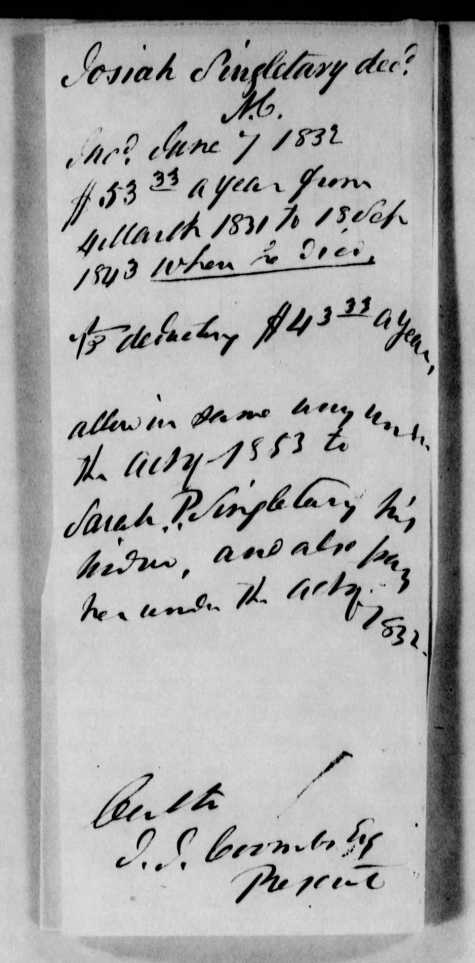 Josiah Singletary decd.
N.C.
Incd. June 7 1832
$53 33 a year from
4 March 1831 to 18 Sep
1843 when he died,
deducting $43 33 a year,
allow in same way under
the act of 1853 to
Sarah P. Singletary his
widow, and also pay
her under the act of
1832.
J. J. Coombs Esq
Present